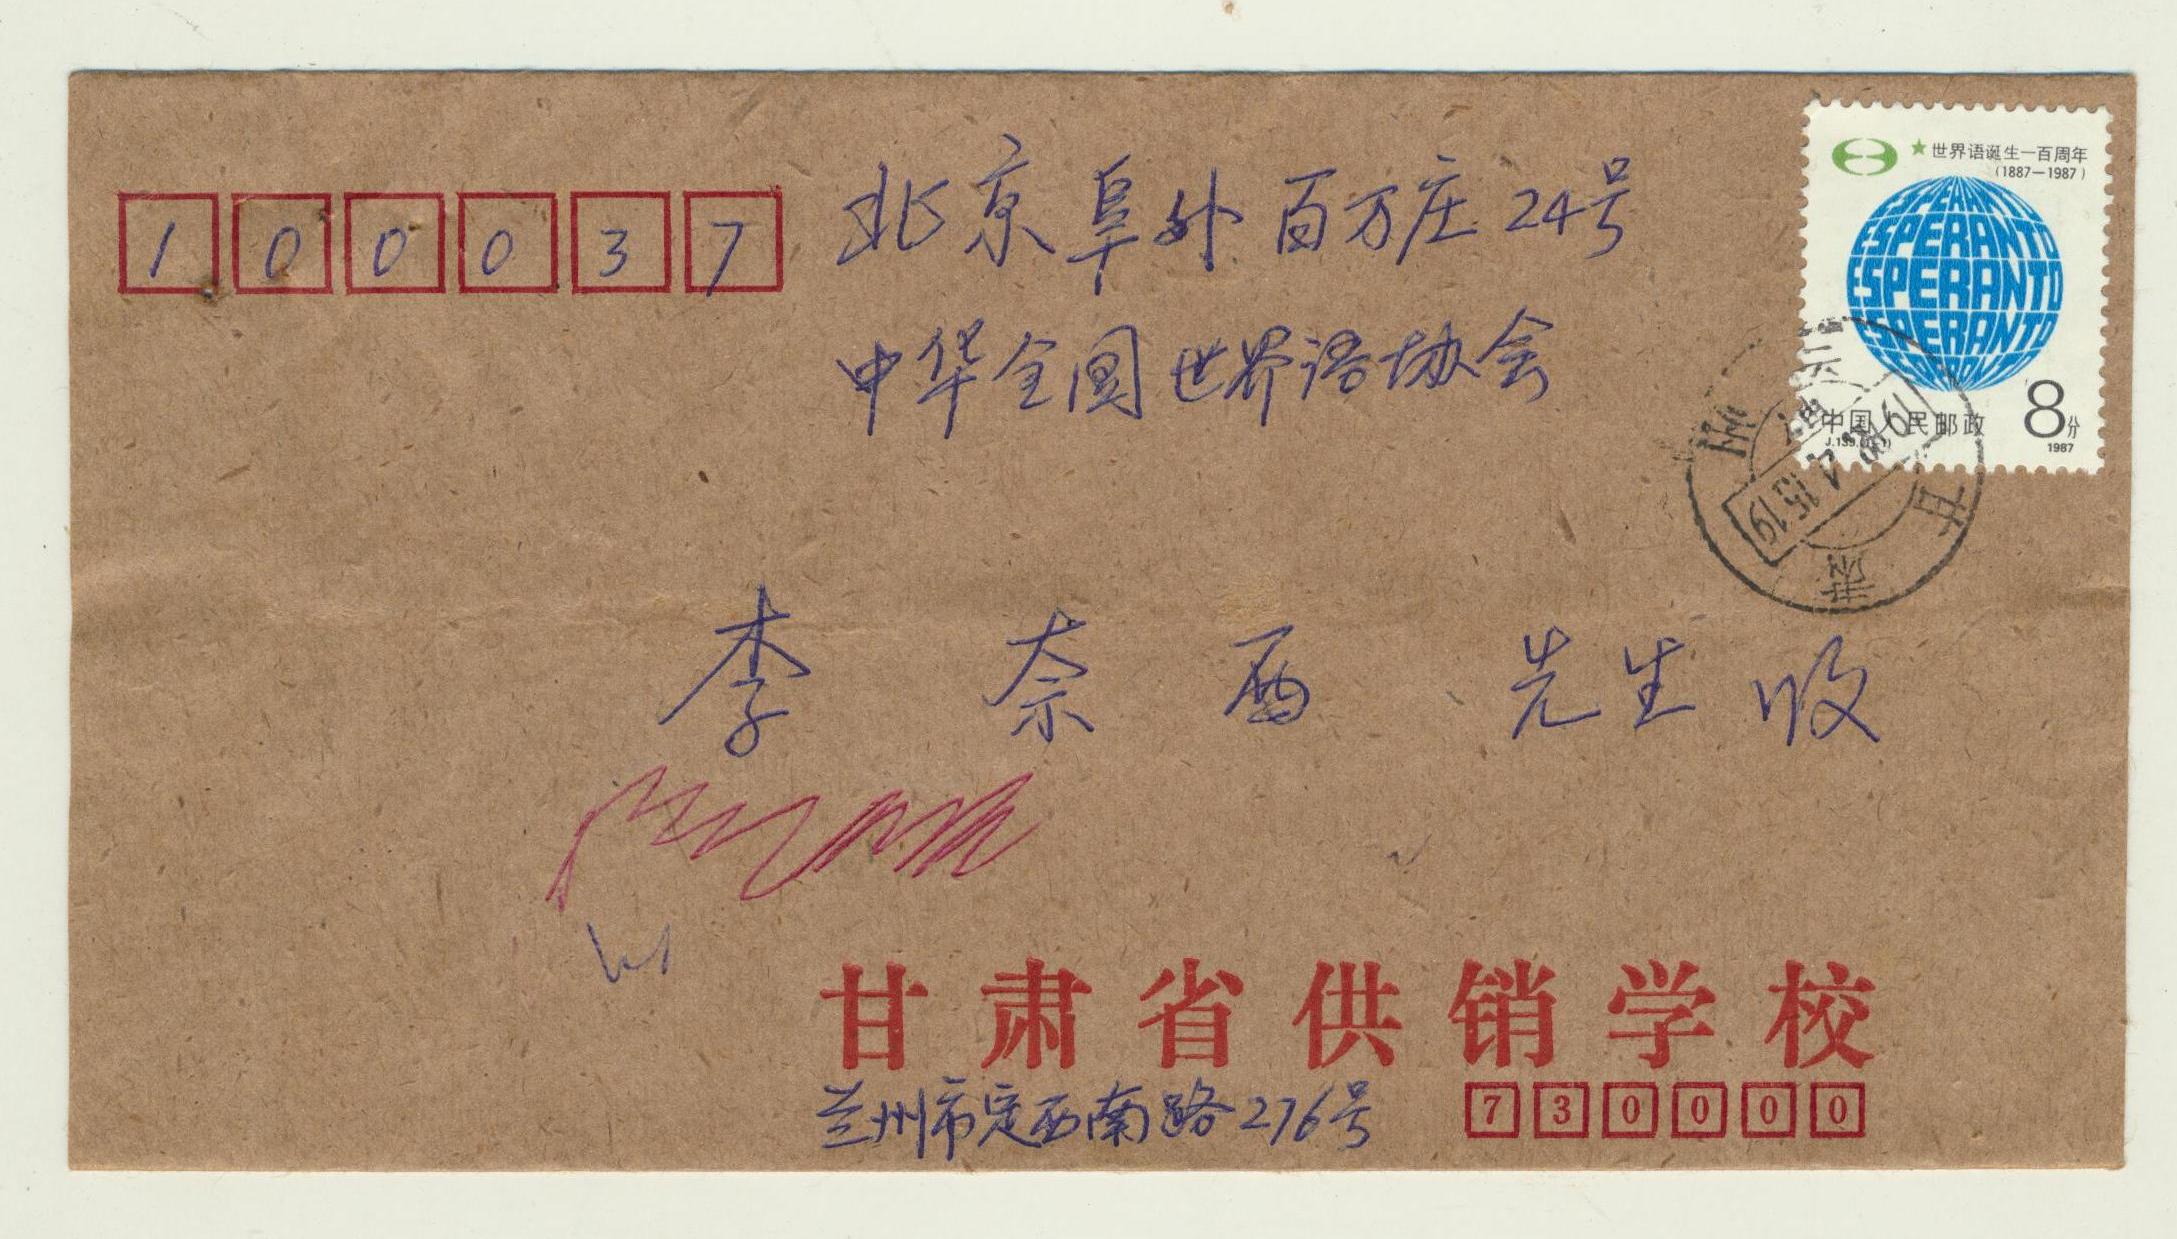 100037
北京阜外百万庄24号
中华全国世界语协会
李奈西 先生 收
★世界语诞生一百周年
(1887—1987)
ESPERANTO
ESPERANTO
ESPERANTO
ESPERANTO
中国人民邮政
8分
J.139.(1-1)
1987
甘肃
15.19
甘肃省供销学校
兰州市定西南路276号
730000